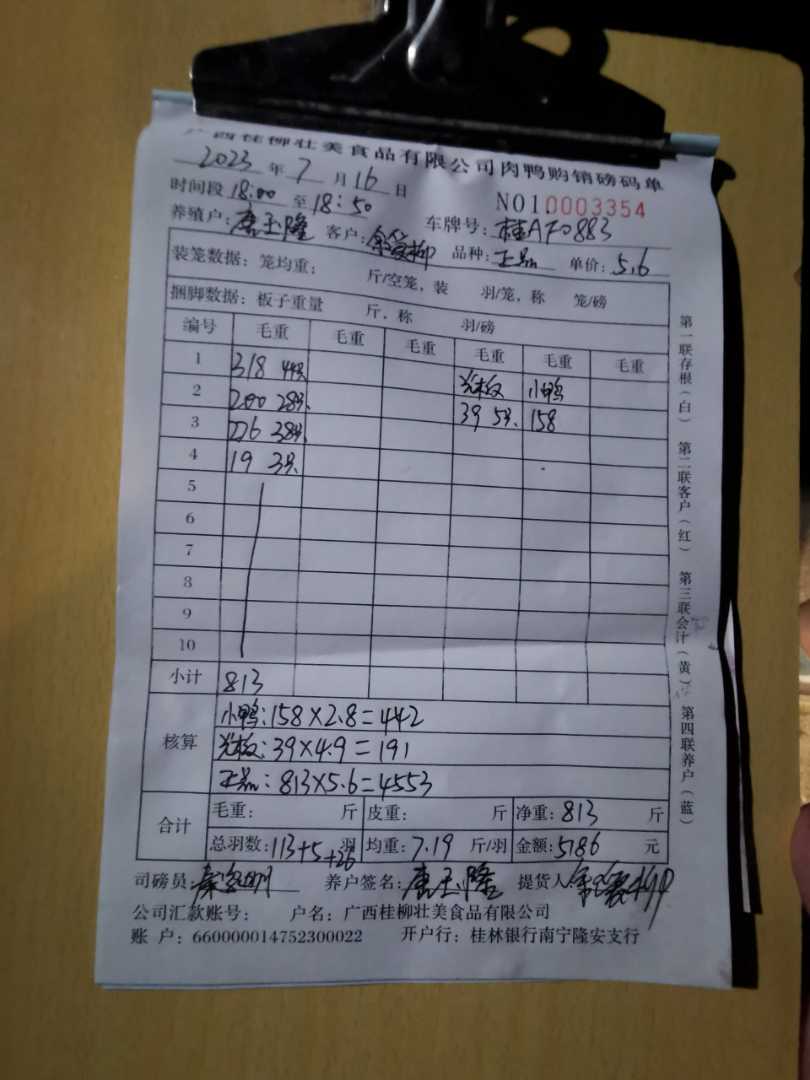 广西桂柳壮美食品有限公司肉鸭购销磅码单
2023 年 7 月 16 日
NO10003354
时间段 18:00 至 18:50
养殖户: 唐玉隆 客户: 柳 车牌号: 桂AF0883
品种: 正品 单价: 5.6
装笼数据: 笼均重: 斤/空笼, 装 羽/笼, 称 笼/磅
捆脚数据: 板子重量 斤, 称 羽/磅
编号 毛重 毛重 毛重 毛重 毛重 毛重
1 318 44只 光板 小鸭
2 200 28只 39 5只 158
3 226 38只
4 19 3只
5
6
7
8
9
10
小计 813
核算
小鸭: 158×2.8=442
光板: 39×4.9=191
正品: 813×5.6=4553
合计
毛重: 斤 皮重: 斤 净重: 813 斤
总羽数: 113+5+26 羽 均重: 7.19 斤/羽 金额: 5186 元
司磅员: 养户签名: 唐玉隆 提货人:
公司汇款账号: 户名: 广西桂柳壮美食品有限公司
账 户: 660000014752300022 开户行: 桂林银行南宁隆安支行
第一联存根(白) 第二联客户(红) 第三联会计(黄) 第四联养户(蓝)